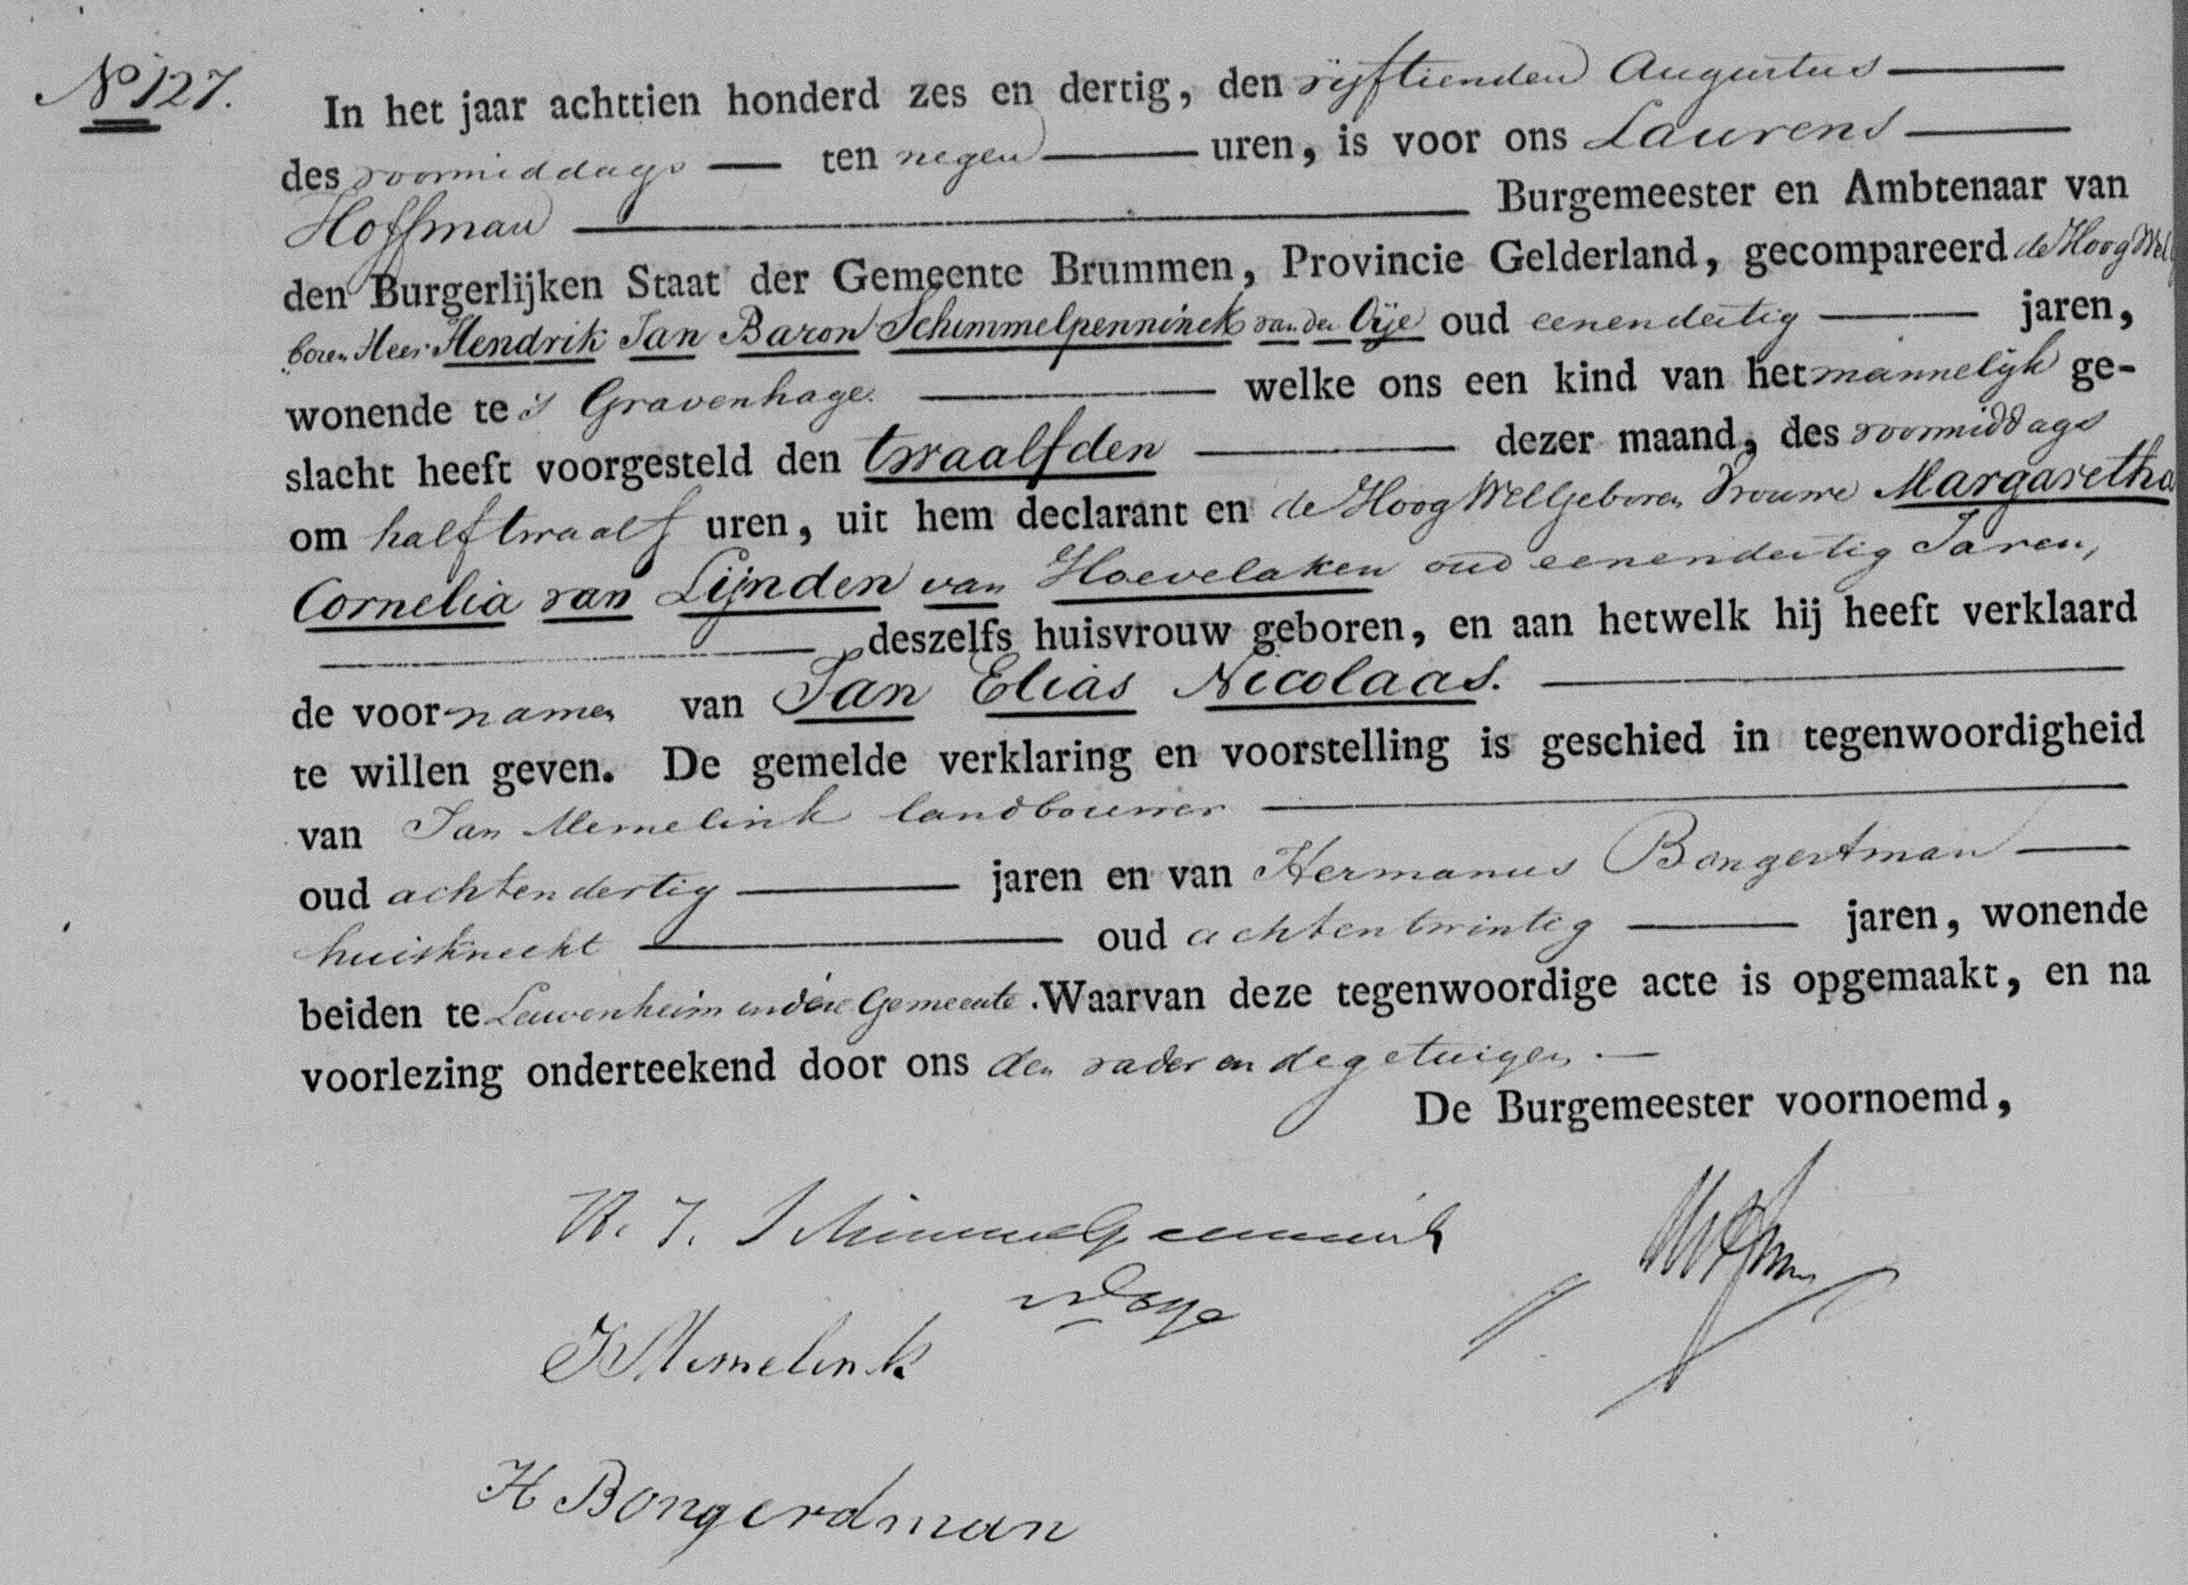 No 127.
In het jaar achttien honderd zes en dertig, den vijftienden Augustus
des voormiddags ten negen uren, is voor ons Laurens
Hoffman Burgemeester en Ambtenaar van
den Burgerlijken Staat der Gemeente Brummen, Provincie Gelderland, gecompareerd de Hoog Wel
boren Heer Hendrik Jan Baron Schimmelpenninck van der Oije oud eenendertig jaren,
wonende te 's Gravenhage. welke ons een kind van het mannelijk ge-
slacht heeft voorgesteld den twaalfden dezer maand, des voormiddags
om half twaalf uren, uit hem declarant en de Hoog Wellgeboren Vrouwe Margaretha
Cornelia van Lijnden van Hoevelaken oud eenendertig Jaren,
deszelfs huisvrouw geboren, en aan hetwelk hij heeft verklaard
de voornamen van Jan Elias Nicolaas.
te willen geven. De gemelde verklaring en voorstelling is geschied in tegenwoordigheid
van Jan Memelink landbouwer
oud achtendertig jaren en van Hermanus Bongertman
huisknecht oud achtentwintig jaren, wonende
beiden te Leuvenheim in deze Gemeente. Waarvan deze tegenwoordige acte is opgemaakt, en na
voorlezing onderteekend door ons den vader en de getuigen.
De Burgemeester voornoemd,
H. J. Schimmelpenninck
vd Oye
J Memelink
H Bongerdman